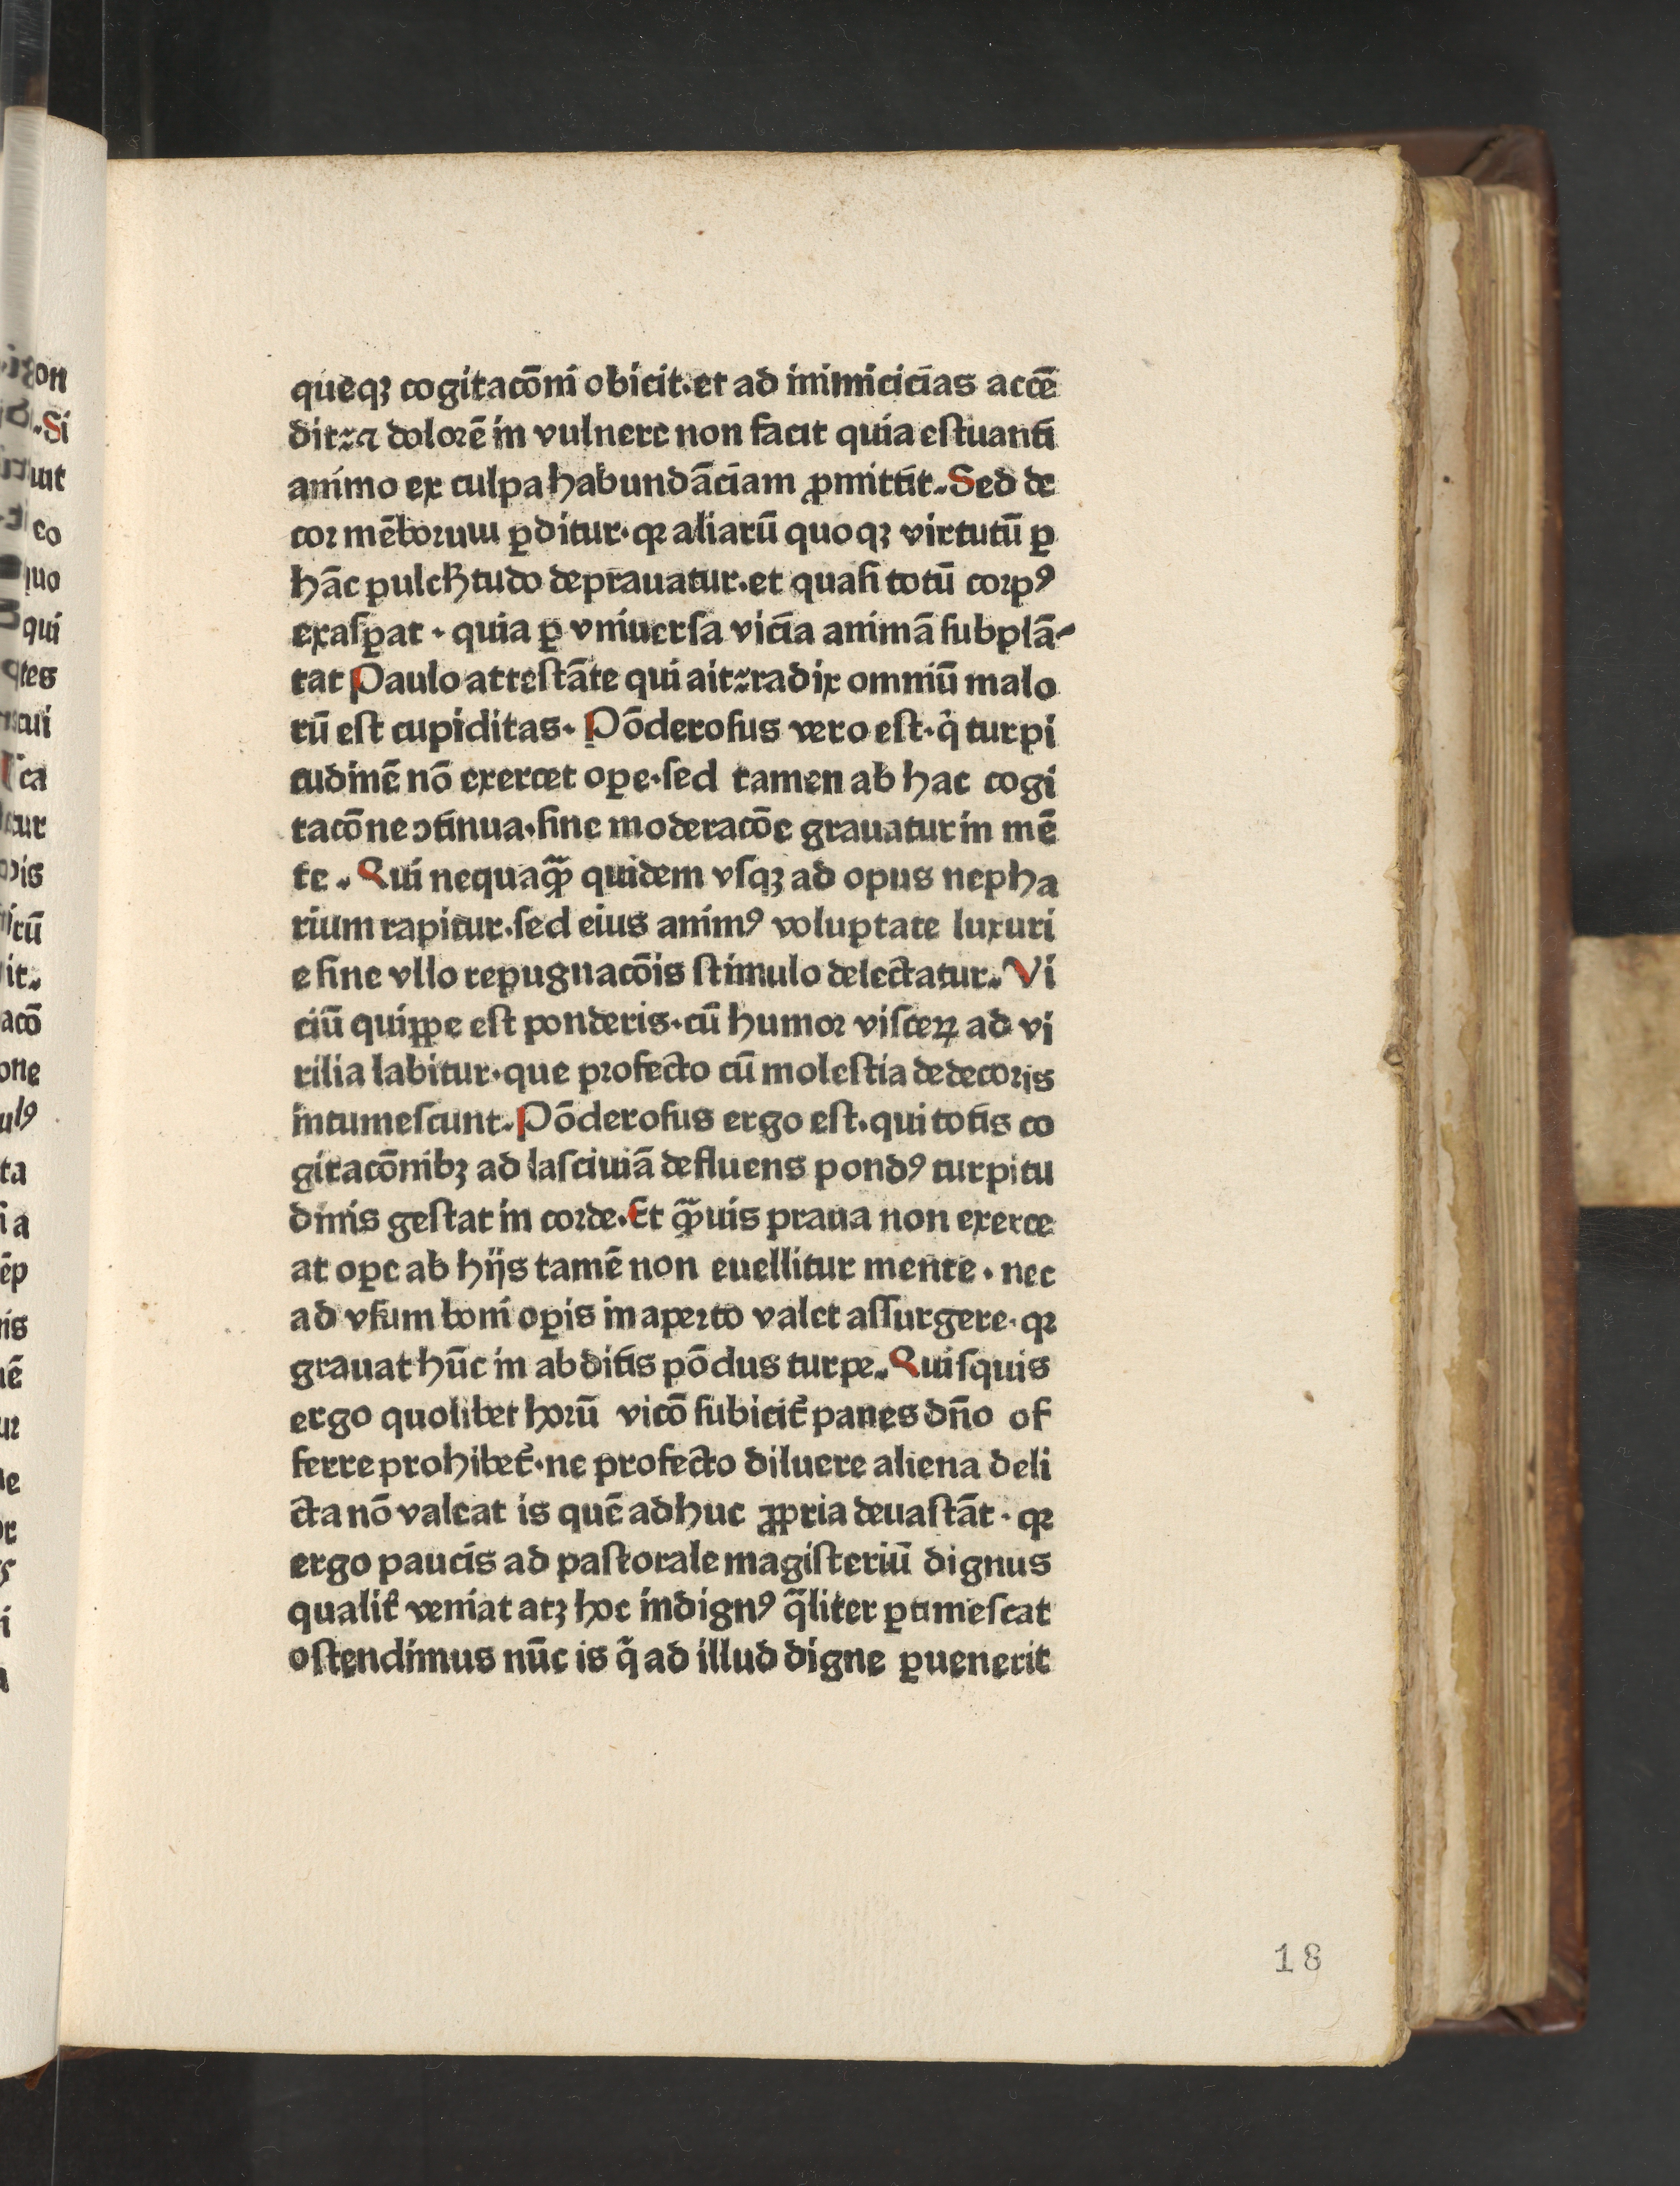 queqꝫ cogitacōni obicit·et ad inimicicias accē
dit:⁊ a dolorē in vulnere non facit quia estuanti
animo ex culpa habundāciam ꝓmittit. Sed de
cor mēborum ꝑditur·qꝛ aliarū quoqꝫ virtutū ꝑ
hāc pulchͬtudo deprauatur·et quasi totū corpꝰ
exasꝑat · quia ꝑ vniuersa vicia animā subplā-
tat Paulo attestāte qui ait:radix omniū malo
rū est cupiditas· Pōderosus vero est·qͥ turpi
tudinē nō exercet oꝑe·sed tamen ab hac cogi
tacōne ↄtinua·sine moderacōe grauatur in mē
te. Qui nequaꝙ̄ quidem vsqꝫ ad opus nepha
rium rapitur·sed eius animꝰ voluptate luxuri
e sine vllo repugnacōis stimulo delectatur. Vi
ciū quiꝑpe est ponderis·cū humor visceꝝ ad vi
rilia labitur·que profecto cū molestia dedecoris
intumescunt. Pōderosus ergo est·qui totis co
gitacōnibꝫ ad lasciuiā defluens pondꝰ turpitu
dinis gestat in corde. Et ꝙ̄uis praua non exerce
at oꝑe ab hijs tamē non euellitur mente · nec
ad vsum boni oꝑis in aperto valet assurgere·qꝛ
grauat hūc in abditis pōdus turpe. Quisquis
ergo quolibet horū vicō subicit᷑ panes dn̄o of
ferre prohibet᷑·ne profecto diluere aliena deli
cta nō valeat is quē adhuc ꝓpria deuastāt · qꝛ
ergo paucis ad pastorale magisteriū dignus
qualit᷑ veniat atqꝫ hoc indignꝰ q̄liter ꝑtimescat
ostendimus nūc is qͥ ad illud digne ꝑuenerit
18